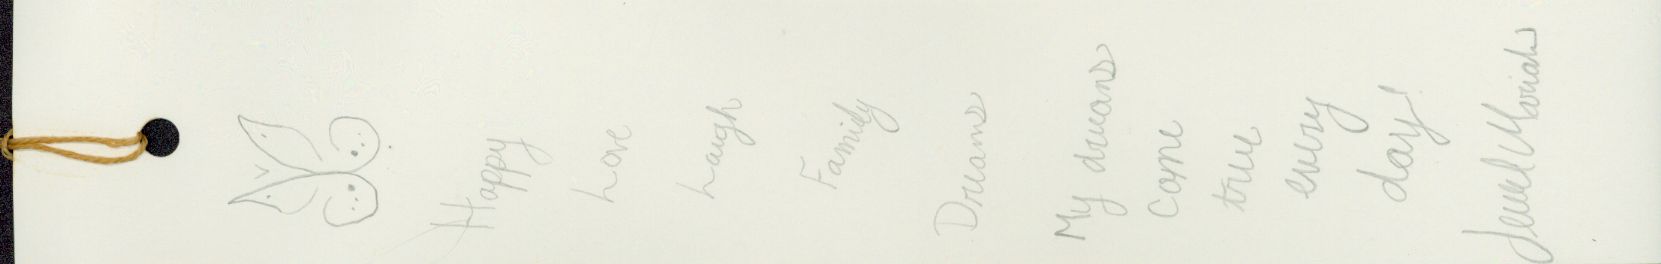 Happy
Love
Laugh
Family
Dreams
My dreams
come
true
every
day!
Jewel Moriah